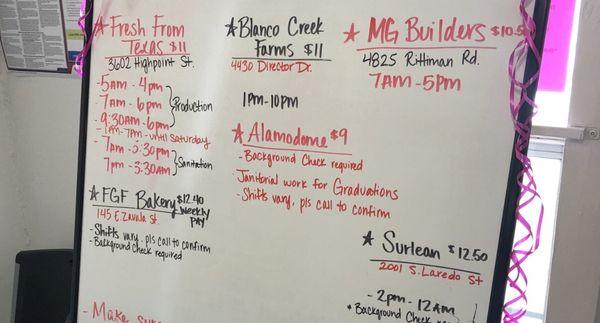 ★ Fresh From
Texas $11
3602 Highpoint St.
- 5am - 4pm
- 7am - 6pm } Production
- 9:30am - 6pm
- 1am - 7am - until Saturday
- 7am - 3:30pm
7pm - 3:30am } Sanitation
★ FGF Bakery $12.40
weekly
pay
145 E. Zavala St.
- Shifts vary, pls call to confirm
- Background check required
- Make sure
★ Blanco Creek
Farms $11
4430 Director Dr.
1pm-10pm
★ Alamodome $9
- Background Check required
Janitorial work for Graduations
- Shifts vary, pls call to confirm
★ MG Builders $10.5
4825 Rittiman Rd.
7am-5pm
★ Surlean $12.50
2001 S. Laredo St
- 2pm - 12am
* Background Check